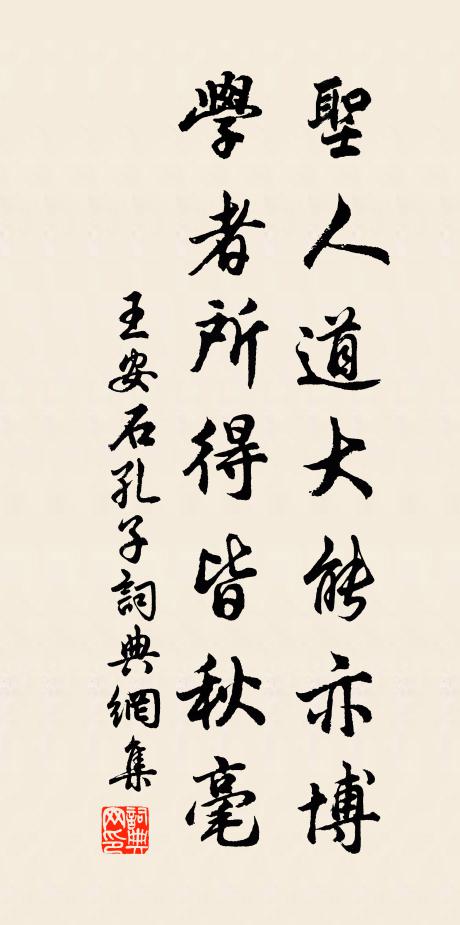 聖人道大能亦博
學者所得皆秋毫
王安石孔子詞典網集
詞典網印